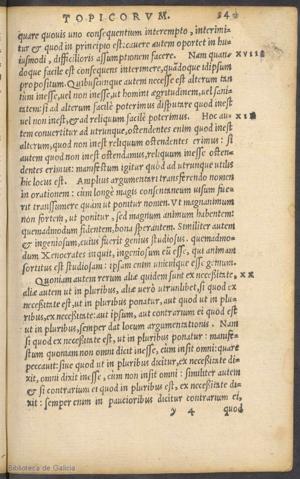 TOPICORVM. 34
quare quouis uno consequentium interempto, interimi-
tur & quod in principio est: cauere autem oportet in hu-
iusmodi, difficilioris assumptionem facere. Nam quan- XVIII
doque facile est consequens interimere, quãdoque idipsum
propositum. Quibuscunque autem necesse est alterum tan
tum inesse, uel non inesse, ut homini ægritudinem, uel sani-
tatem: si ad alterum facilè poterimus disputare quod inest
uel non inest, & ad reliquum facilè poterimus. Hoc au- XIX
tem conuertitur ad utrunque, ostendentes enim quod inest
alterum, quod non inest reliquum ostendentes erimus: si
autem quod non inest ostendamus, reliquum inesse osten-
dentes erimus: manifestum igitur quòd ad utrunque utilis
hic locus est. Amplius argumentari transferendo nomen
in orationem: cum longè magis consentaneum
ut transsumere quam ut ponitur nomen. Vt magnanimum
non fortem, ut ponitur, sed magnum animum habentem:
quemadmodum fidentem, bona sperantem. Similiter autem
& ingeniosum, cuius fuerit genius studiosus. quemadmo-
dum Xenocrates inquit, ingeniosum eũ esse, qui animam
sortitus est studiosam: ipsam enim unicuique esse genium.
Quoniam autem rerum aliæ quidem sunt ex necessitate, XX
aliæ autem ut in pluribus, aliæ uerò utrunlibet, si quod ex
necessitate est, ut in pluribus ponatur, aut quod ut in plu-
ribus, ex necessitate: aut ipsum, aut contrarium ei quod est
ut in pluribus, semper dat locum argumentationis. Nam
si quod ex necessitate est, ut in pluribus ponatur: manife-
stum quoniam non omni dicit inesse, cùm insit omni: quare
peccauit: siue quod ut in pluribus dicitur, ex necessitate di-
xit, omni dixit inesse, cùm non insit omni: similiter autem
& si contrarium ei quod in pluribus est, ex necessitate di-
xit: semper enim in paucioribus dicitur contrarium ei,
y 4 quod
Biblioteca de Galicia